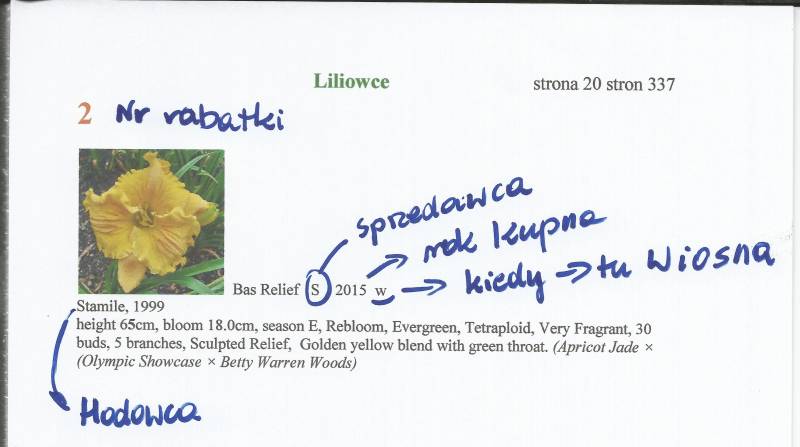 Liliowce strona 20 stron 337
2 Nr rabatki
sprzedawca
rok kupna
Bas Relief S 2015 w kiedy → tu Wiosna
Stamile, 1999
height 65cm, bloom 18.0cm, season E, Rebloom, Evergreen, Tetraploid, Very Fragrant, 30
buds, 5 branches, Sculpted Relief, Golden yellow blend with green throat. (Apricot Jade ×
(Olympic Showcase × Betty Warren Woods)
Hodowca